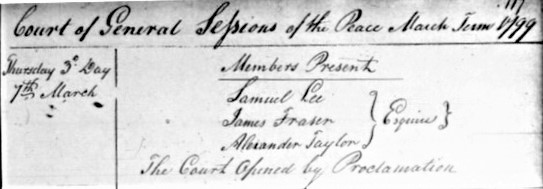 Court of General Sessions of the Peace March Term 1799
Thursday 3d Day
7th March
Members Present
Samuel Lee
James Fraser
Alexander Taylor
Esquire
The Court Opened by Proclamation